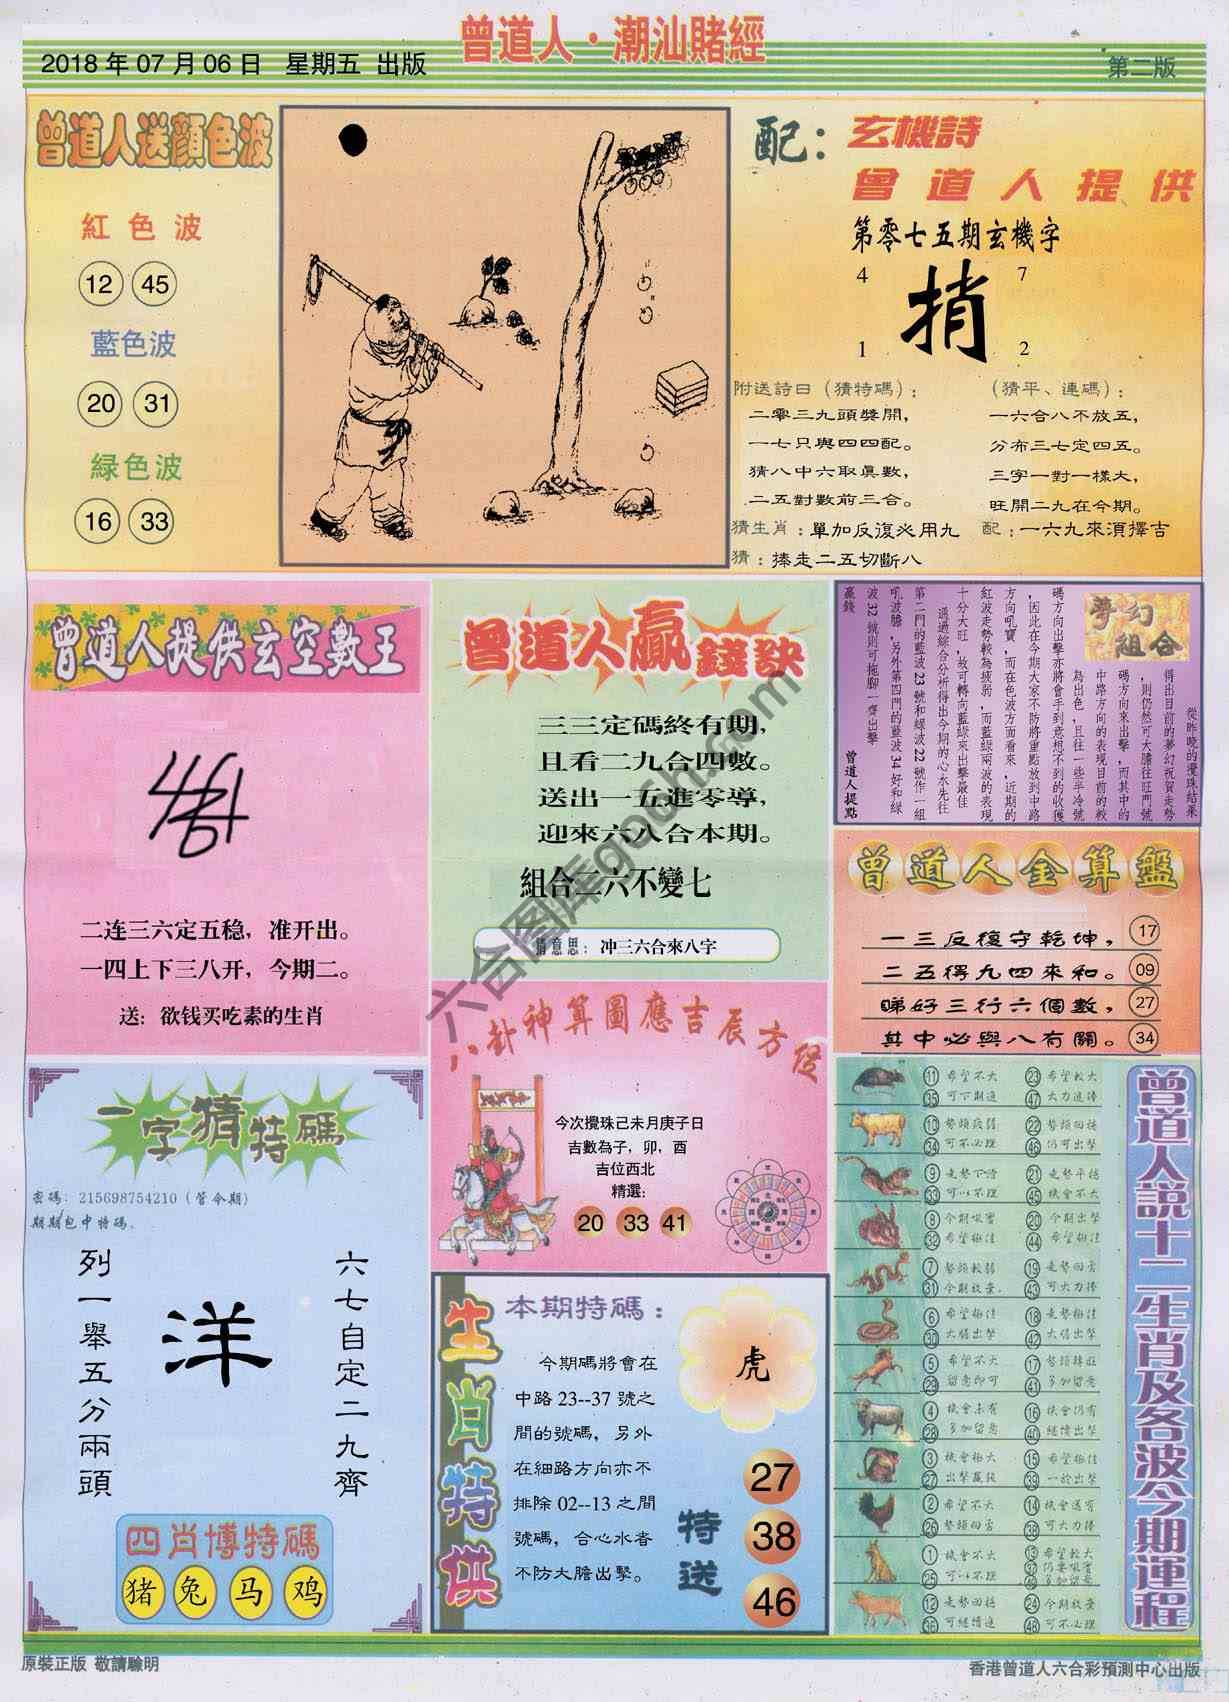 曾道人·潮汕賭經
2018年07月06日 星期五 出版
第二版
曾道人送顏色波
紅色波
12 45
藍色波
20 31
緑色波
16 33
配：玄機詩
曾道人提供
第零七五期玄機字
4 7
捎
1 2
附送詩曰（猜特碼）：
二零三九頭獎開，
一七只與四四配。
猜八中六取眞數，
二五對數前三合。
（猜平、連碼）：
一六合八不放五，
分布三七定四五。
三字一對一樣大，
旺開二九在今期。
猜生肖：單加反復必用九
配：一六九來須擇吉
猜：捧走二五切斷八
曾道人提供玄空數王
二连三六定五稳，准开出。
一四上下三八开，今期二。
送：欲钱买吃素的生肖
曾道人贏錢訣
三三定碼終有期，
且看二九合四數。
送出一五進零導，
迎來六八合本期。
組合二六不變七
猜意思：冲三六合來八字
夢幻組合
從昨晚的攪珠結果
得出目前的夢幻祝賀走勢
，則仍然可大膽往旺門號
碼方向來出擊，而其中的
中路方向的表現目前的較
為出色，且往一些半冷號
碼方向出擊亦將會手到意想不到的收獲
，因此在今期大家不防將重點放到中路
方向吼寶，而在色波方面看來，近期的
紅波走勢較為疲弱，而藍綠兩波的表現
十分大旺，故可轉向藍綠來出擊最佳
通過綜合分析得出今期的心水先往
第二門的藍波23號和綠波22號作一組
吼波膽，另外第四門的藍波34好和綠
波32號則可拖腳一齊出擊
贏錢
曾道人提點
曾道人金算盤
一三反復守乾坤， 17
二五得九四來和。 09
睇好三行六個數， 27
其中必與八有關。 34
八卦神算圖應吉辰方位
今次攪珠己未月庚子日
吉數為子，卯，酉
吉位西北
精選：
20 33 41
一字猜特碼
密碼：215698754210（管今期）
期期包中特碼.
列一舉五分兩頭
洋
六七自定二九齊
四肖博特碼
猪 兔 马 鸡
生肖特供
本期特碼：
今期碼將會在
中路23--37號之
間的號碼，另外
在細路方向亦不
排除02--13之間
號碼，合心水者
不防大膽出擊。
虎
特送
27
38
46
曾道人說十二生肖及各波今期運程
11 希望不大 23 希望較大
35 可下期追 47 大力追捧
10 勢頭疲弱 22 勢頭回揚
34 可不必理 46 仍可出擊
9 走勢下滑 21 走勢平穩
33 可以不理 45 機會不大
8 今期吸寶 20 今期出擊
32 希望極佳 44 希望極佳
7 勢頭較弱 19 走勢回勇
31 今期放棄. 43 可大力捧
6 希望極佳 18 走勢極佳
30 大膽出擊 42 大膽出擊
5 希望不大 17 勢頭轉旺
29 留意即可 41 多加留意
4 機會未有 16 機會仍有
28 多加留意 40 繼續出擊
3 機會極大 15 希望極佳
27 出擊贏錢 39 一於出擊
2 希望不大 14 機會送寶
26 勢頭回勇 38 可大力捧
1 機會不大 13 希望較大
25 可以不理
12 走勢回揚 24 今期放棄
36 可繼續追 48 可不必理
六合图库gocn.com
原裝正版 敬請驗明
香港曾道人六合彩預測中心出版